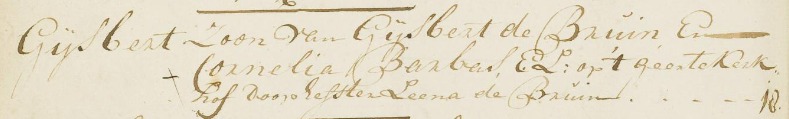 Gijsbert Zoon van Gijsbert de Bruin En
Cornelia Barbas, EL: op 't Geertekerk-
hof Doop hefster Leena de Bruin . - - - - 18.